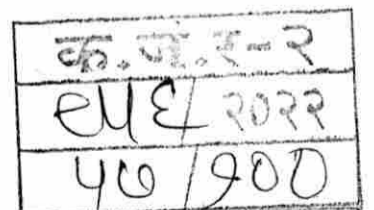 क.जं.र-२
९५६/२०२२
५७/१००